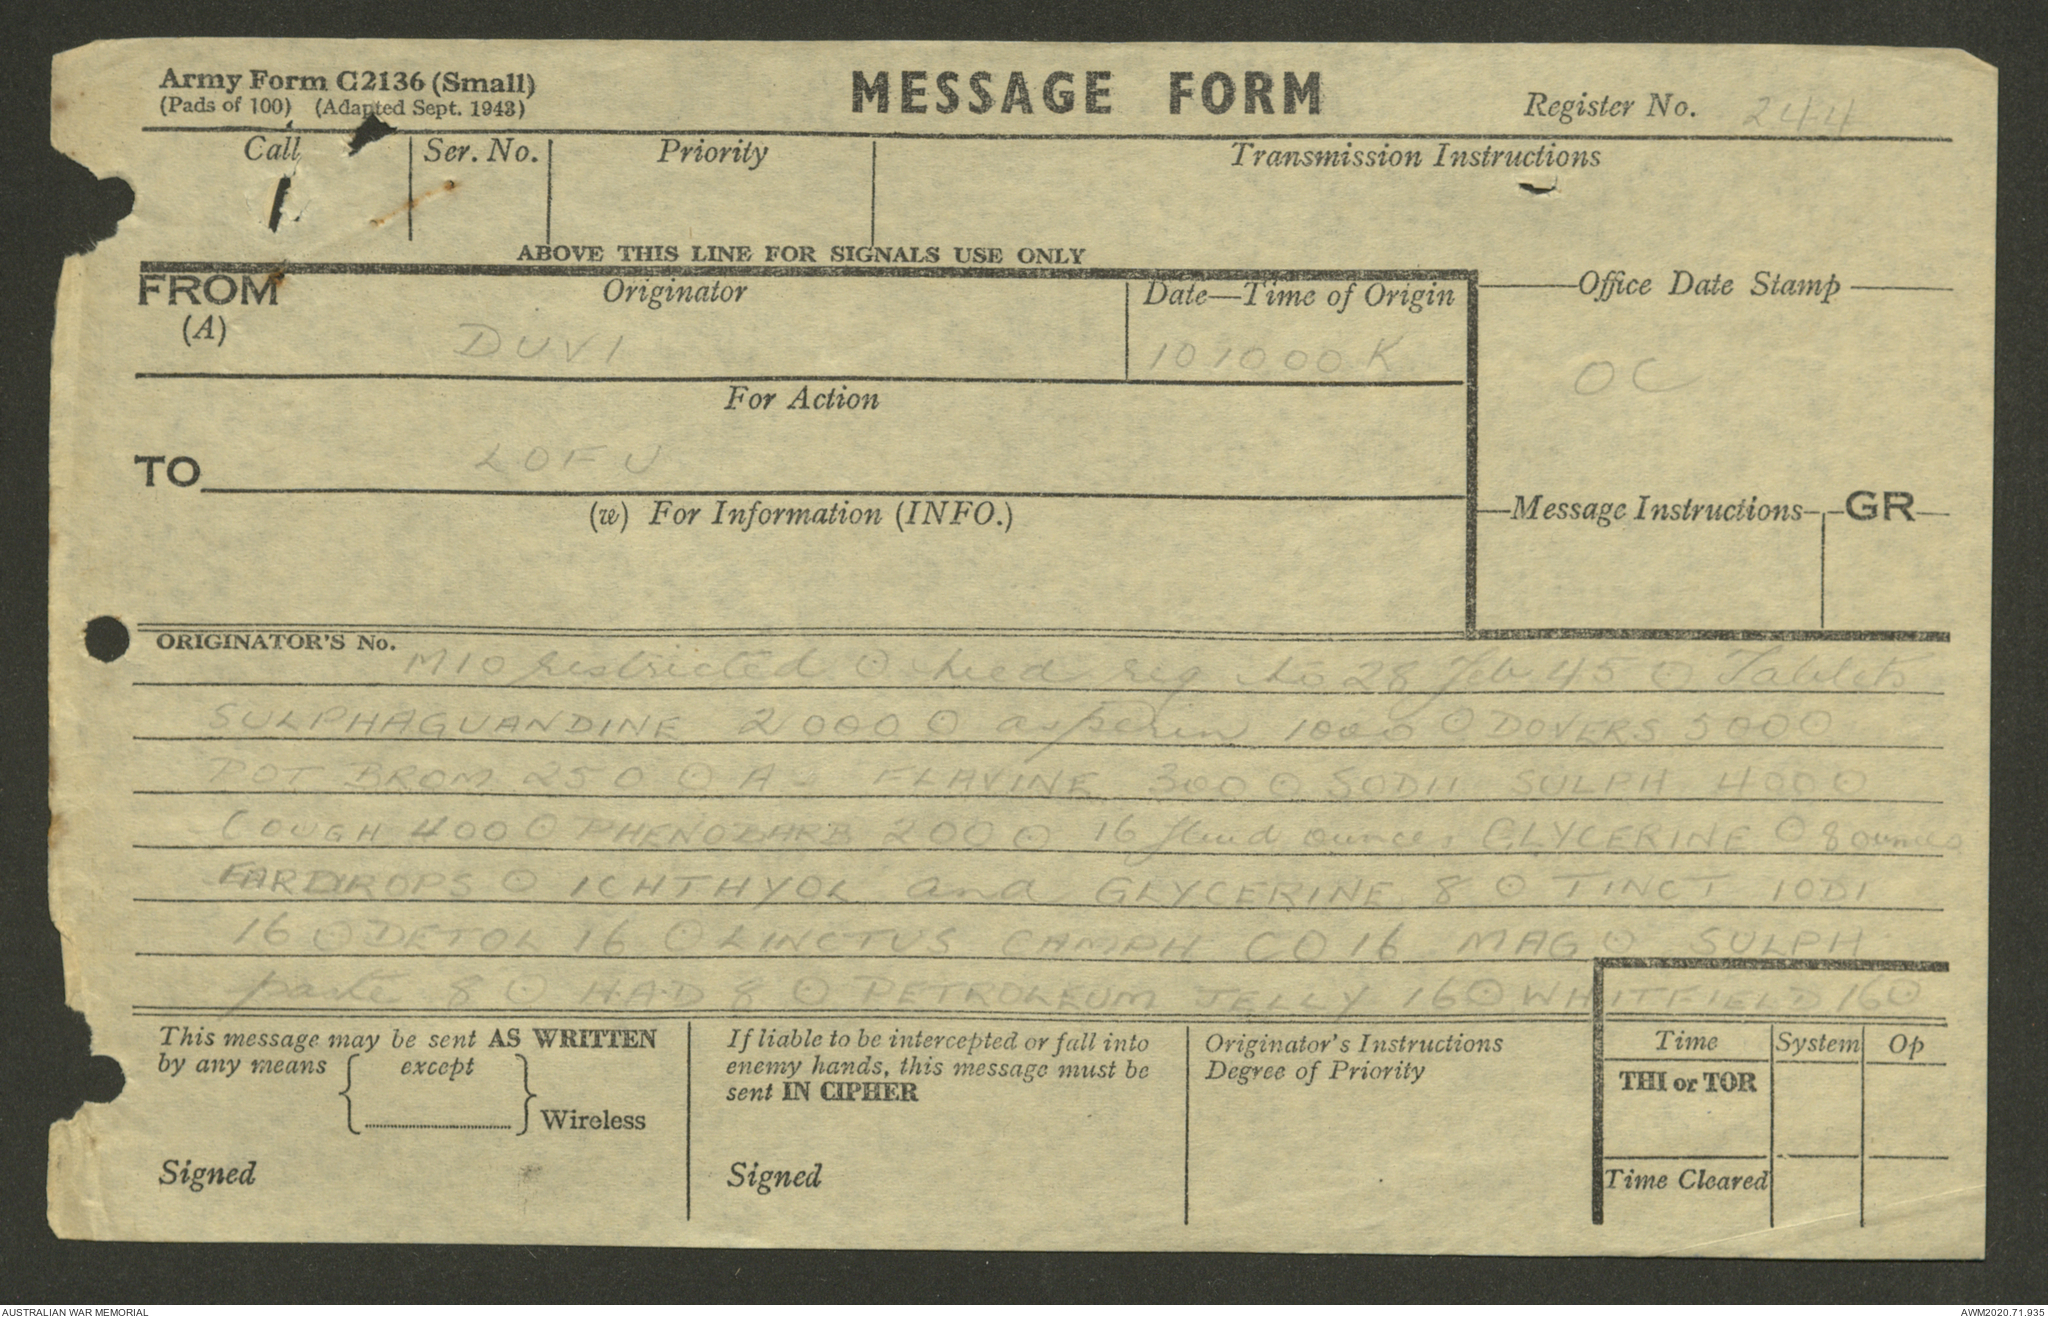 Army Form C2136 (Small)
(Pads of 100) (Adapted Sept. 1943)
MESSAGE FORM
Register No. 244
Call
Ser. No.
Priority
Transmission Instructions
ABOVE THIS LINE FOR SIGNALS USE ONLY
FROM
(A)
Originator
DUVI
Date—Time of Origin
101000 K
Office Date Stamp
OC
For Action
TO
LOFU
(w) For Information (INFO.)
Message Instructions
GR
ORIGINATOR'S No.
M10 restricted ⊙ med req to 28 Feb 45 ⊙ Tablets
SULPHAGUANDINE 2000 ⊙ asperin 1000 ⊙ DOVERS 500 ⊙
POT BROM 250 ⊙ A - FLAVINE 300 ⊙ SODII SULPH 400 ⊙
COUGH 400 ⊙ PHENOBARB 200 ⊙ 16 fluid ounces GLYCERINE ⊙ 8 ounces
EARDROPS ⊙ ICHTHYOL and GLYCERINE 8 ⊙ TINCT IODI
16 ⊙ DETOL 16 ⊙ LINCTUS CAMPH CO 16 MAG ⊙ SULPH
paste 8 ⊙ HAD 8 ⊙ PETROLEUM JELLY 16 ⊙ WHITFIELD 16 ⊙
This message may be sent AS WRITTEN
by any means
except
Wireless
Signed
If liable to be intercepted or fall into
enemy hands, this message must be
sent IN CIPHER
Signed
Originator's Instructions
Degree of Priority
Time
System
Op
THI or TOR
Time Cleared
AUSTRALIAN WAR MEMORIAL
AWM2020.71.935